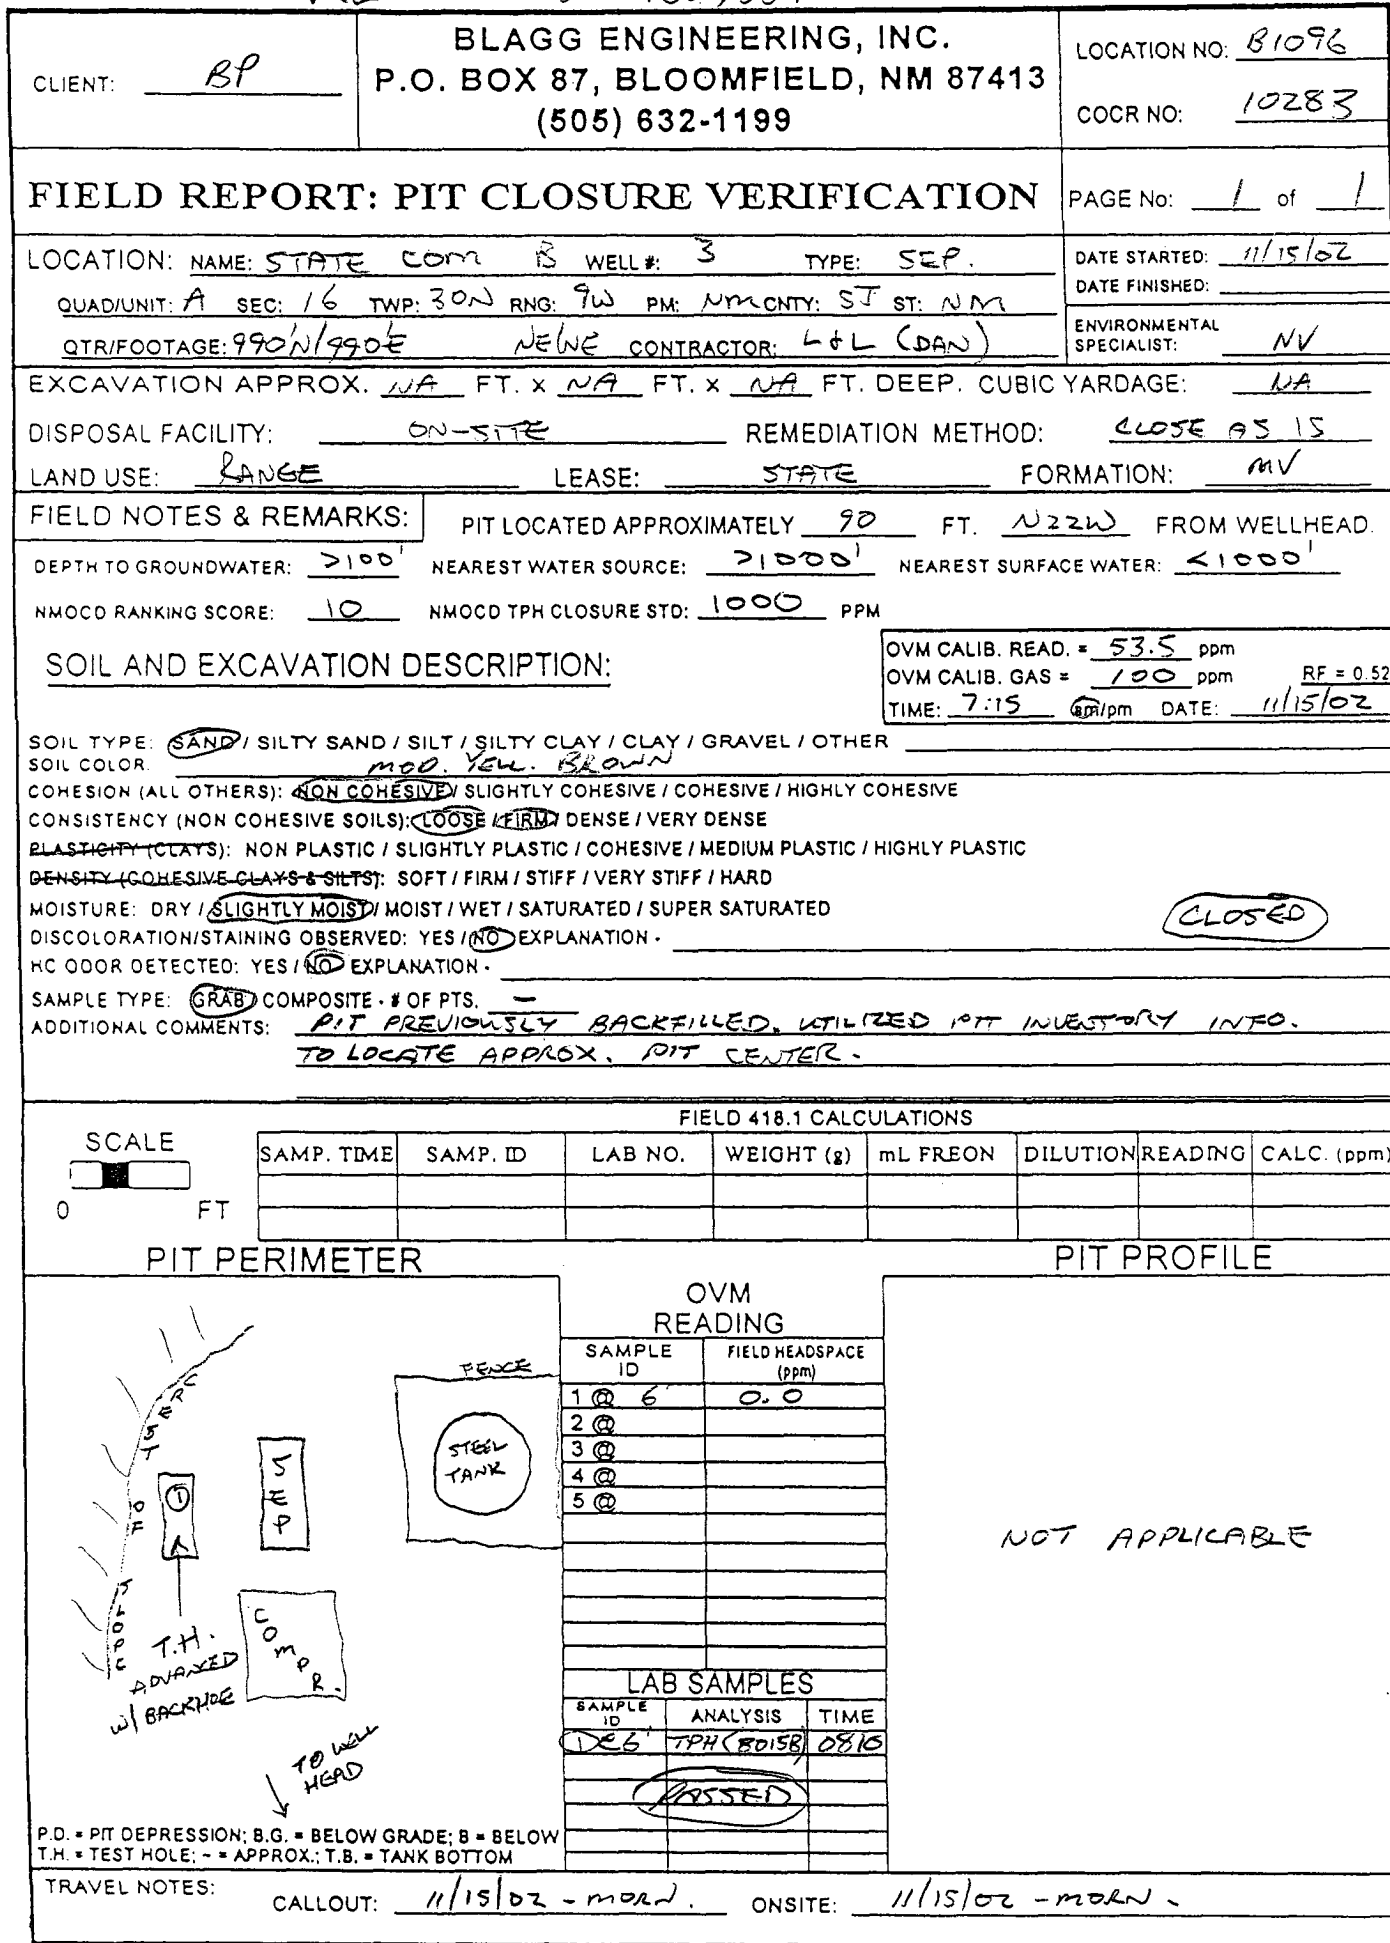 BLAGG ENGINEERING, INC.
P.O. BOX 87, BLOOMFIELD, NM 87413
(505) 632-1199
CLIENT: BP
LOCATION NO: B1096
COCR NO: 10283
FIELD REPORT: PIT CLOSURE VERIFICATION
PAGE No: 1 of 1
LOCATION: NAME: STATE COM B WELL #: 3 TYPE: SEP.
QUAD/UNIT: A SEC: 16 TWP: 30N RNG: 9W PM: NM CNTY: SJ ST: NM
QTR/FOOTAGE: 990'N/990'E NE/NE CONTRACTOR: L&L (DAN)
DATE STARTED: 11/15/02
DATE FINISHED:
ENVIRONMENTAL
SPECIALIST: NV
EXCAVATION APPROX. NA FT. x NA FT. x NA FT. DEEP. CUBIC YARDAGE: NA
DISPOSAL FACILITY: ON-SITE REMEDIATION METHOD: CLOSE AS IS
LAND USE: RANGE LEASE: STATE FORMATION: MV
FIELD NOTES & REMARKS: PIT LOCATED APPROXIMATELY 90 FT. N22W FROM WELLHEAD.
DEPTH TO GROUNDWATER: >100' NEAREST WATER SOURCE: >1000' NEAREST SURFACE WATER: <1000'
NMOCD RANKING SCORE: 10 NMOCD TPH CLOSURE STD: 1000 PPM
SOIL AND EXCAVATION DESCRIPTION:
OVM CALIB. READ. = 53.5 ppm
OVM CALIB. GAS = 100 ppm RF = 0.52
TIME: 7:15 am/pm DATE: 11/15/02
SOIL TYPE: SAND / SILTY SAND / SILT / SILTY CLAY / CLAY / GRAVEL / OTHER
SOIL COLOR: MOD. YELL. BROWN
COHESION (ALL OTHERS): NON COHESIVE / SLIGHTLY COHESIVE / COHESIVE / HIGHLY COHESIVE
CONSISTENCY (NON COHESIVE SOILS): LOOSE / FIRM / DENSE / VERY DENSE
PLASTICITY (CLAYS): NON PLASTIC / SLIGHTLY PLASTIC / COHESIVE / MEDIUM PLASTIC / HIGHLY PLASTIC
DENSITY (COHESIVE CLAYS & SILTS): SOFT / FIRM / STIFF / VERY STIFF / HARD
MOISTURE: DRY / SLIGHTLY MOIST / MOIST / WET / SATURATED / SUPER SATURATED
CLOSED
DISCOLORATION/STAINING OBSERVED: YES / NO EXPLANATION -
HC ODOR DETECTED: YES / NO EXPLANATION -
SAMPLE TYPE: GRAB COMPOSITE - # OF PTS. —
ADDITIONAL COMMENTS: PIT PREVIOUSLY BACKFILLED. UTILIZED PIT INVENTORY INFO.
TO LOCATE APPROX. PIT CENTER.
FIELD 418.1 CALCULATIONS
SCALE
0 FT
SAMP. TIME SAMP. ID LAB NO. WEIGHT (g) mL FREON DILUTION READING CALC. (ppm)
PIT PERIMETER
PIT PROFILE
OVM
READING
SAMPLE ID FIELD HEADSPACE (ppm)
1 @ 6' 0.0
2 @
3 @
4 @
5 @
FENCE
STEEL
TANK
CREST OF SLOPE
1
SEP
COMPR.
T.H.
ADVANCED
W/ BACKHOE
TO WELL
HEAD
NOT APPLICABLE
LAB SAMPLES
SAMPLE ID ANALYSIS TIME
1@6' TPH (8015B) 0810
PASSED
P.D. = PIT DEPRESSION; B.G. = BELOW GRADE; B = BELOW
T.H. = TEST HOLE; ~ = APPROX.; T.B. = TANK BOTTOM
TRAVEL NOTES: CALLOUT: 11/15/02 - MORN. ONSITE: 11/15/02 - MORN.